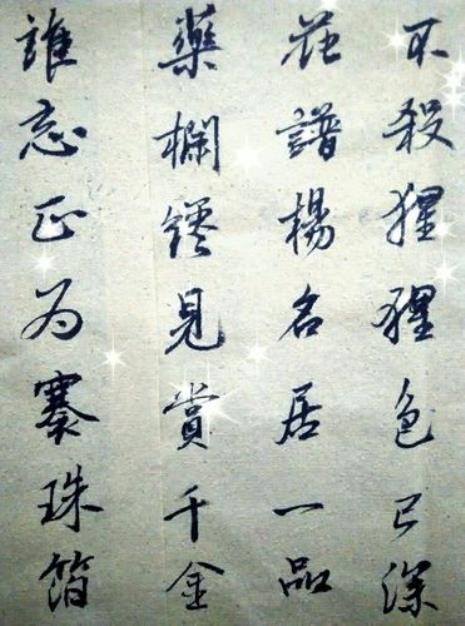 不殺猩猩色已深
花譜楊名居一品
藥欄見賞千金
誰忘正為褰珠箔